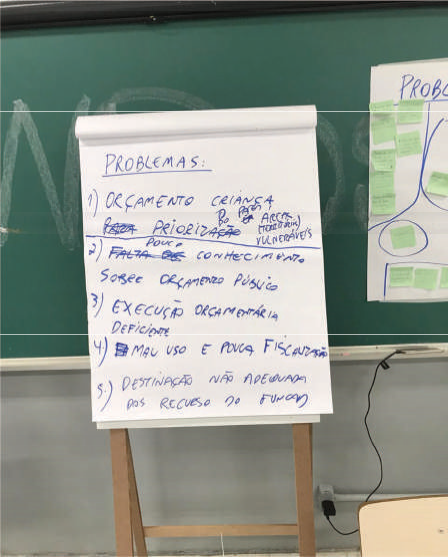 PROBLEMAS:
1) ORÇAMENTO CRIANÇA
PRIORIZAÇÃO ÁREA
(TERRITÓRIO)
VULNERÁVEIS
2) POUCO CONHECIMENTO
SOBRE ORÇAMENTO PÚBLICO
3) EXECUÇÃO ORÇAMENTÁRIA
DEFICIENTE
4) MAU USO E POUCA FISCALIZAÇÃO
5.) DESTINAÇÃO NÃO ADEQUADA
DOS RECURSO DO FUNCAD
PROBL